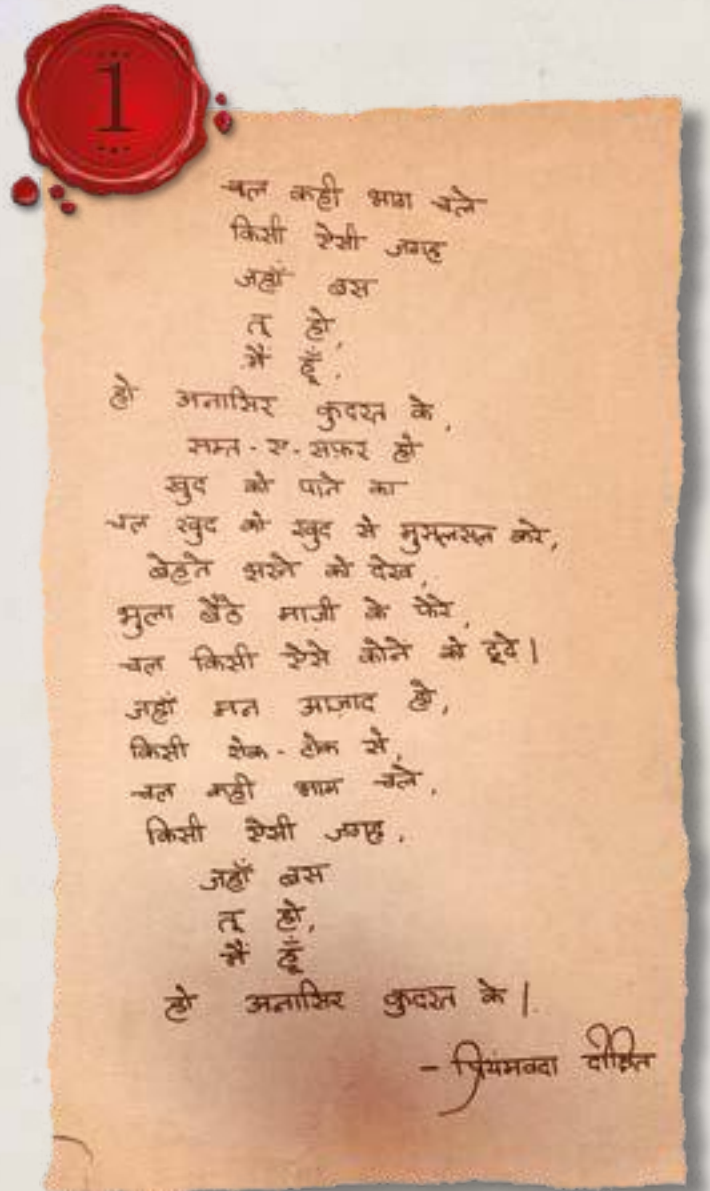 1
चल कही भाग चले
किसी ऐसी जगह
जहाँ बस
तू हो,
मैं हूँ.
हो अनासिर कुदरत के,
सम्त-ए-सफ़र हो
खुद को पाने का
चल खुद को खुद से मुसलसल करे,
बेहते झरने को देख,
भुला बैठे माजी के फेरे,
चल किसी ऐसे कोने को ढूढे।
जहाँ मन आज़ाद हो,
किसी रोक-टोक से,
चल कही भाग चले,
किसी ऐसी जगह,
जहाँ बस
तू हो,
मैं हूँ
हो अनासिर कुदरत के।
- प्रियंमवदा दीक्षित